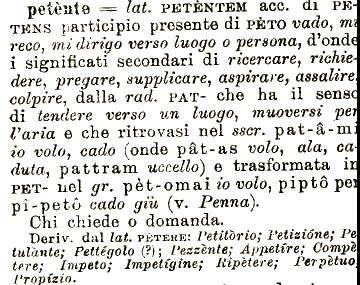 petènte = lat. PETÈNTEM acc. di PE-
TENS participio presente di PÈTO vado, mi
reco, mi dirigo verso luogo o persona, d'onde
i significati secondari di ricercare, richie-
dere, pregare, supplicare, aspirare, assalire
colpire, dalla rad. PAT- che ha il senso
di tendere verso un luogo, muoversi per
l'aria e che ritrovasi nel sscr. pat-â-mi
io volo, cado (onde pât-as volo, ala, ca-
duta, pattram uccello) e trasformata in
PET- nel gr. pèt-omai io volo, piptô per
pî-petô cado giù (v. Penna).
Chi chiede o domanda.
Deriv. dal lat. PÈTERE: Petitòrio; Petizióne; Pe
tulànte; Pettégolo (?); Pezzènte; Appetíre; Compè
tere; Impeto; Impetígine; Ripètere; Perpètuo,
Propízio.